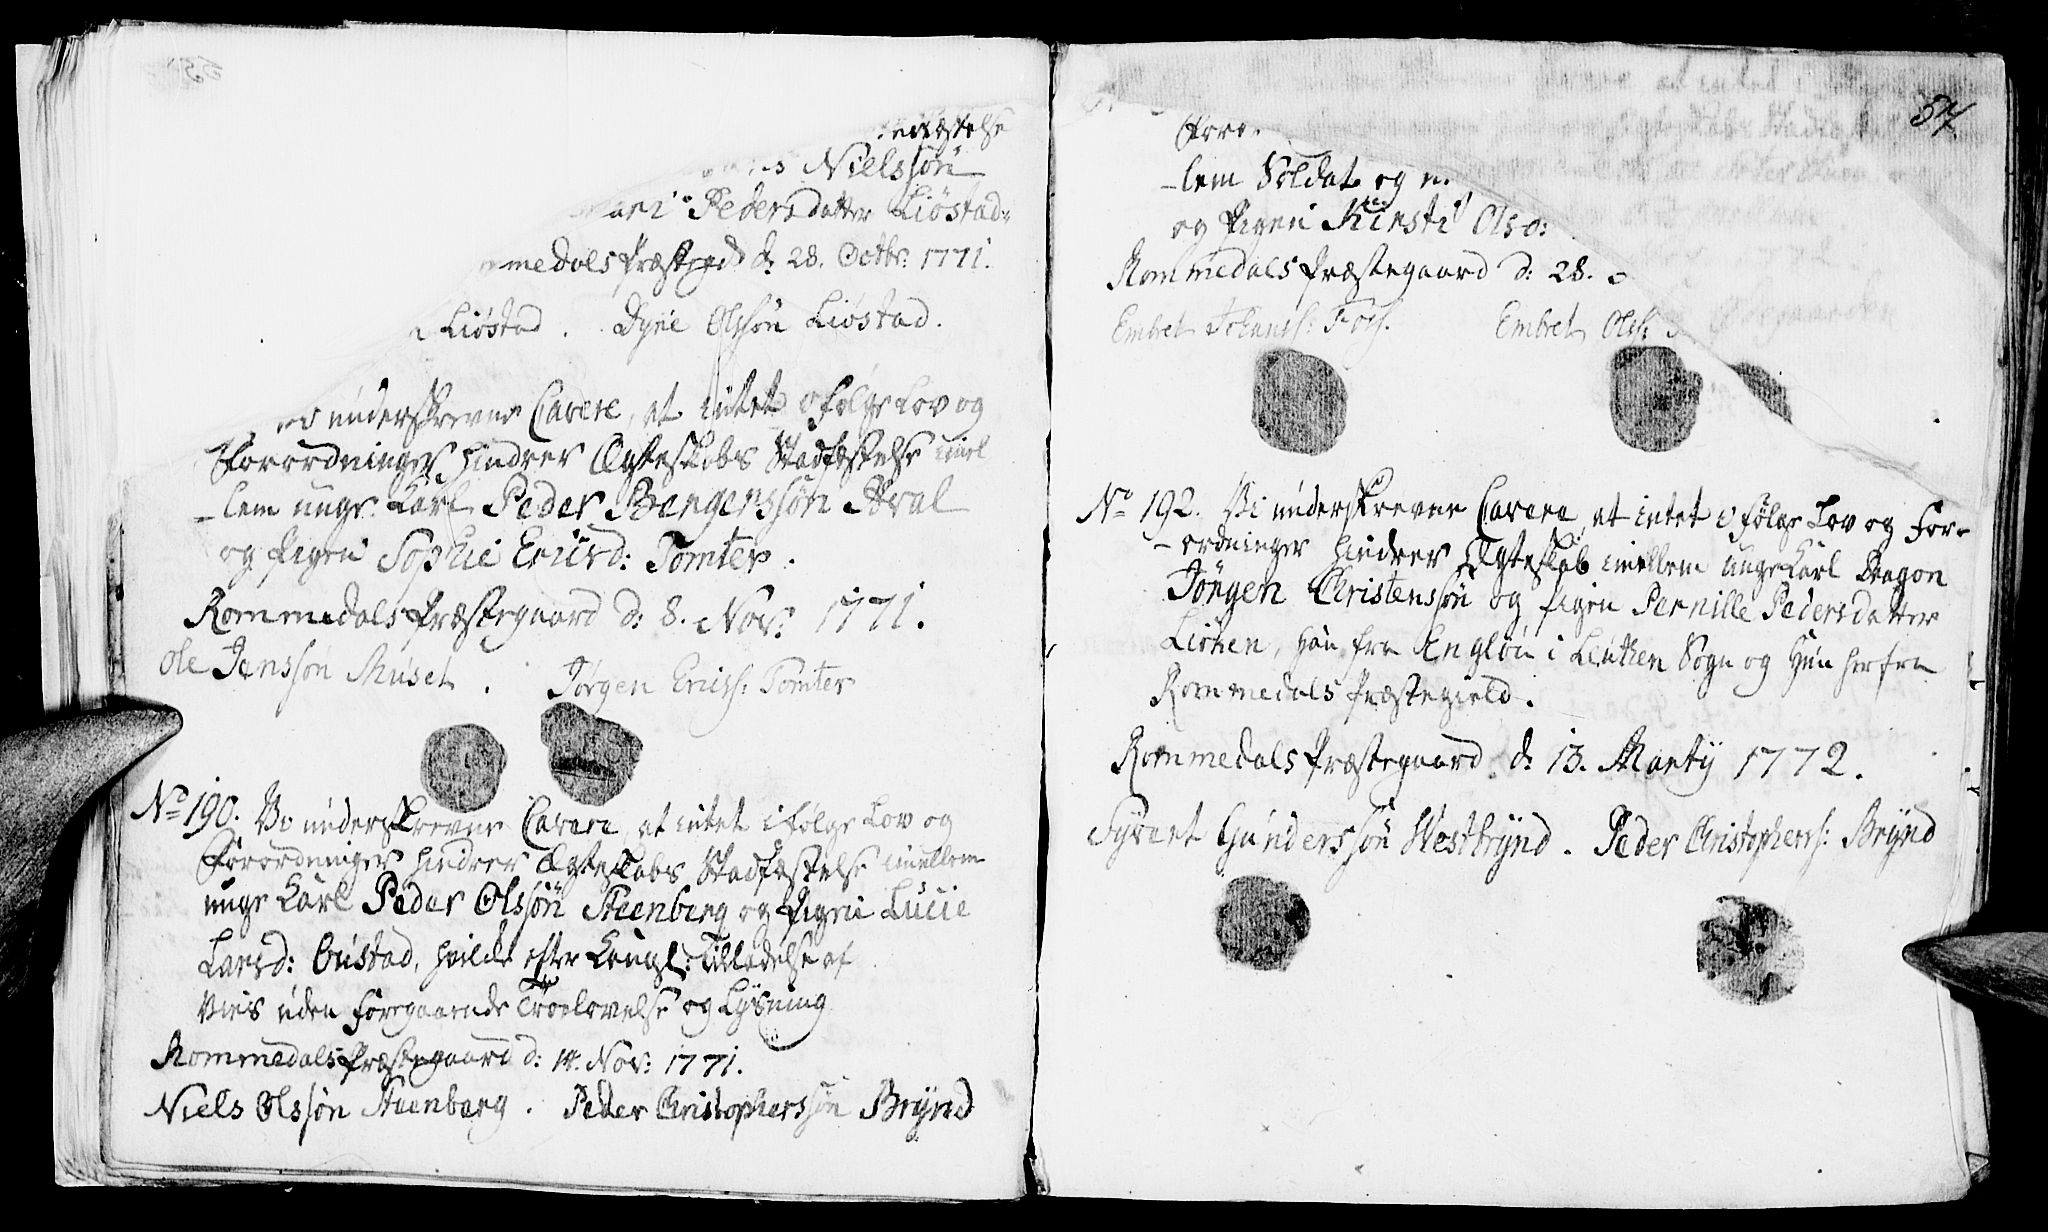 Nielssøn
Pedersdatter Liøstad
Præstegd d: 28. Octbr: 1771.
Liøstad. Dyne Olssøn Liøstad.
underskrevne Cavere, at intet i følge Lov og
Forordninger hindrer Ægteskabs Stadfæstelse imel
-lem unge Karl Peder Bengerssøn Aral
og Pigen Sophie Ericsd: Tomter.
Rommedals Præstegaard d: 8. Nov: 1771.
Ole Janssøn Muset. Jørgen Ericss: Tomter
No 190. Vi underskrevne Cavere, at intet i følge Lov og
Forordninger hindrer Ægteskabs Stadfæstelse imellem
unge Karl Peder Olssøn Steenberg og Pigen Lucie
Larsd: Oustad, hvilde efter Kongl: Tilladelse af
Vies uden foregaaende Troelovelse og Lysning
Rommedals Præstegaard d: 14. Nov: 1771.
Niels Olssøn Steenberg. Peder Christopherssøn Brynd
57
-lem Soldat og
og Pigen Kirsti Olsd:
Rommedals Præstegaard d: 28.
Embret Johanss: Foss. Embret Olss: Ødegaarden
No 192. Vi underskrevne Cavere, at intet i følge Lov og For-
-ordninger hindrer Ægteskab imellem unge Karl Dragon
Jørgen Christenssøn og Pigen Pernille Pedersdatter
Liøhen, han fra Engløn i Leuthen Sogn og hun herfra
Rommedals Præstegield.
Rommedals Præstegaard d: 13. Martij 1772.
Syvert Gunderssøn Westbrynd. Peder Christopherss: Brynd